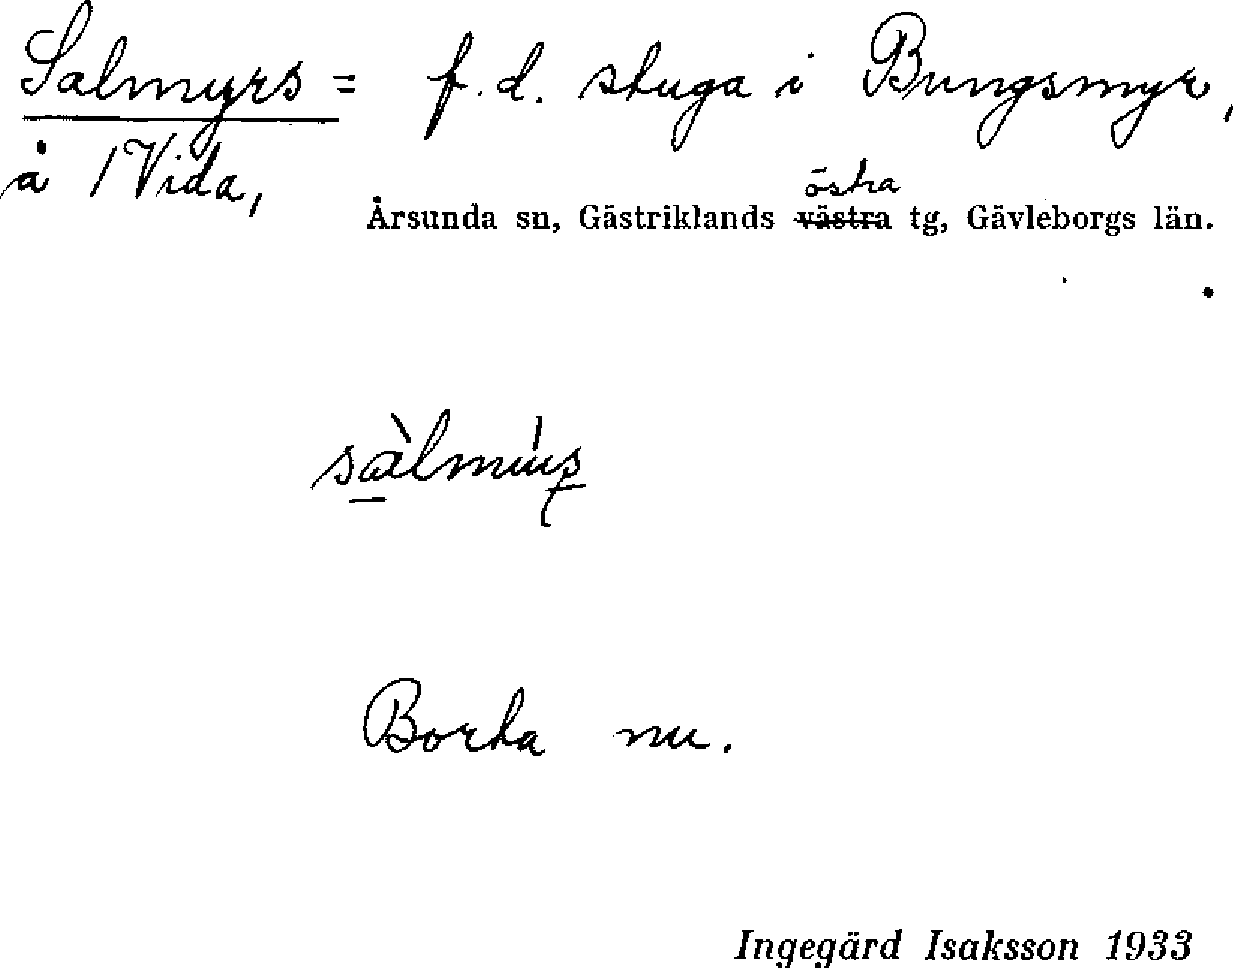 Salmyrs = f.d. stuga i Bungsmyr,
å 1 Vida,
östra
Årsunda sn, Gästriklands västra tg, Gävleborgs län.
Borta nu.
Ingegärd Isaksson 1933